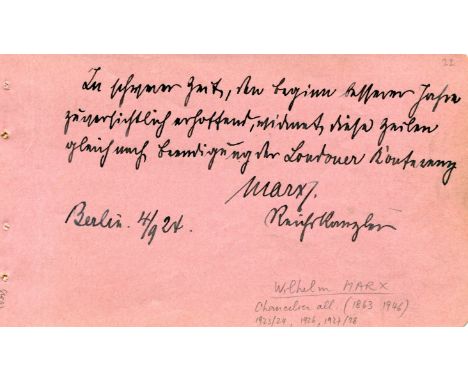 22
In schwerer Zeit, den Beginn besserer Jahre
zuversichtlich erhoffend, widmet diese Zeilen
gleich nach Beendigung der Londoner Konferenz
Marx
Reichskanzler
Berlin. 4/9 24.
Wilhelm MARX
Chancelier all. (1863 1946)
1923/24, 1926, 1927/28